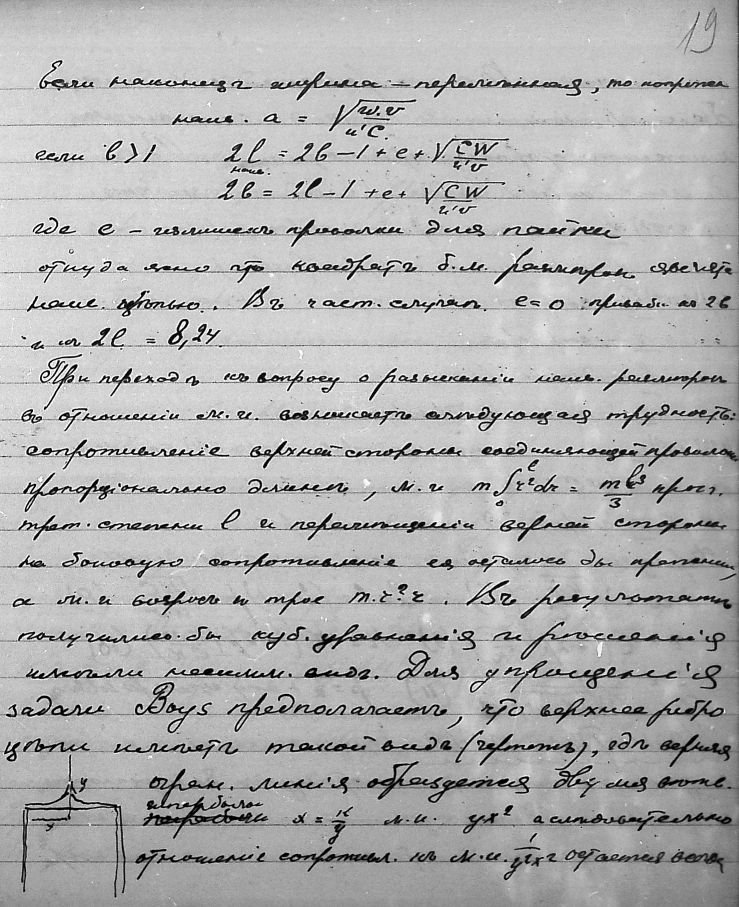 19
Если наконецъ ширина – переменная, то сопротивл.
наив. a = √(w.v / u'C)
если b > 1 2l = 2b – 1 + e + √(CW / u'v)
наив.
2b = 2l – 1 + e + √(CW / u'v)
где e – излишекъ проволки для пайки
откуда ясно что квадратъ б.м. радиометръ является
наив. цѣпью. Въ част. случаѣ e = 0 2b
и 2l = 8,24.
При переходѣ къ вопросу о разысканіи наив.
въ отношеніи м.и. возникаетъ слѣдующая трудность:
сопротивленіе верхней стороны соединяющей проволоки
пропорціонально длинѣ, м.и m∫r²dr = ml³/3 проп.
трет. степени l и перемѣщеніи верхней стороны
на боковую сопротивленіе ея осталось бы прежнимъ,
а м.и возросъ въ трое m.r².r. Въ результатѣ
получились бы куб. уравненія и рѣшенія
имѣли несимм. видъ. Для упрощенія
задачи Boys предполагаетъ, что верхнее ребро
цѣпи имѣетъ такой видъ (чертежъ), гдѣ верхняя
огран. линія образуется двумя вѣтв.
гиперболы x = к/y м.и. yx² а слѣдовательно
отношеніе сопротивл. къ м.и. 1/y²x² остается
y
x